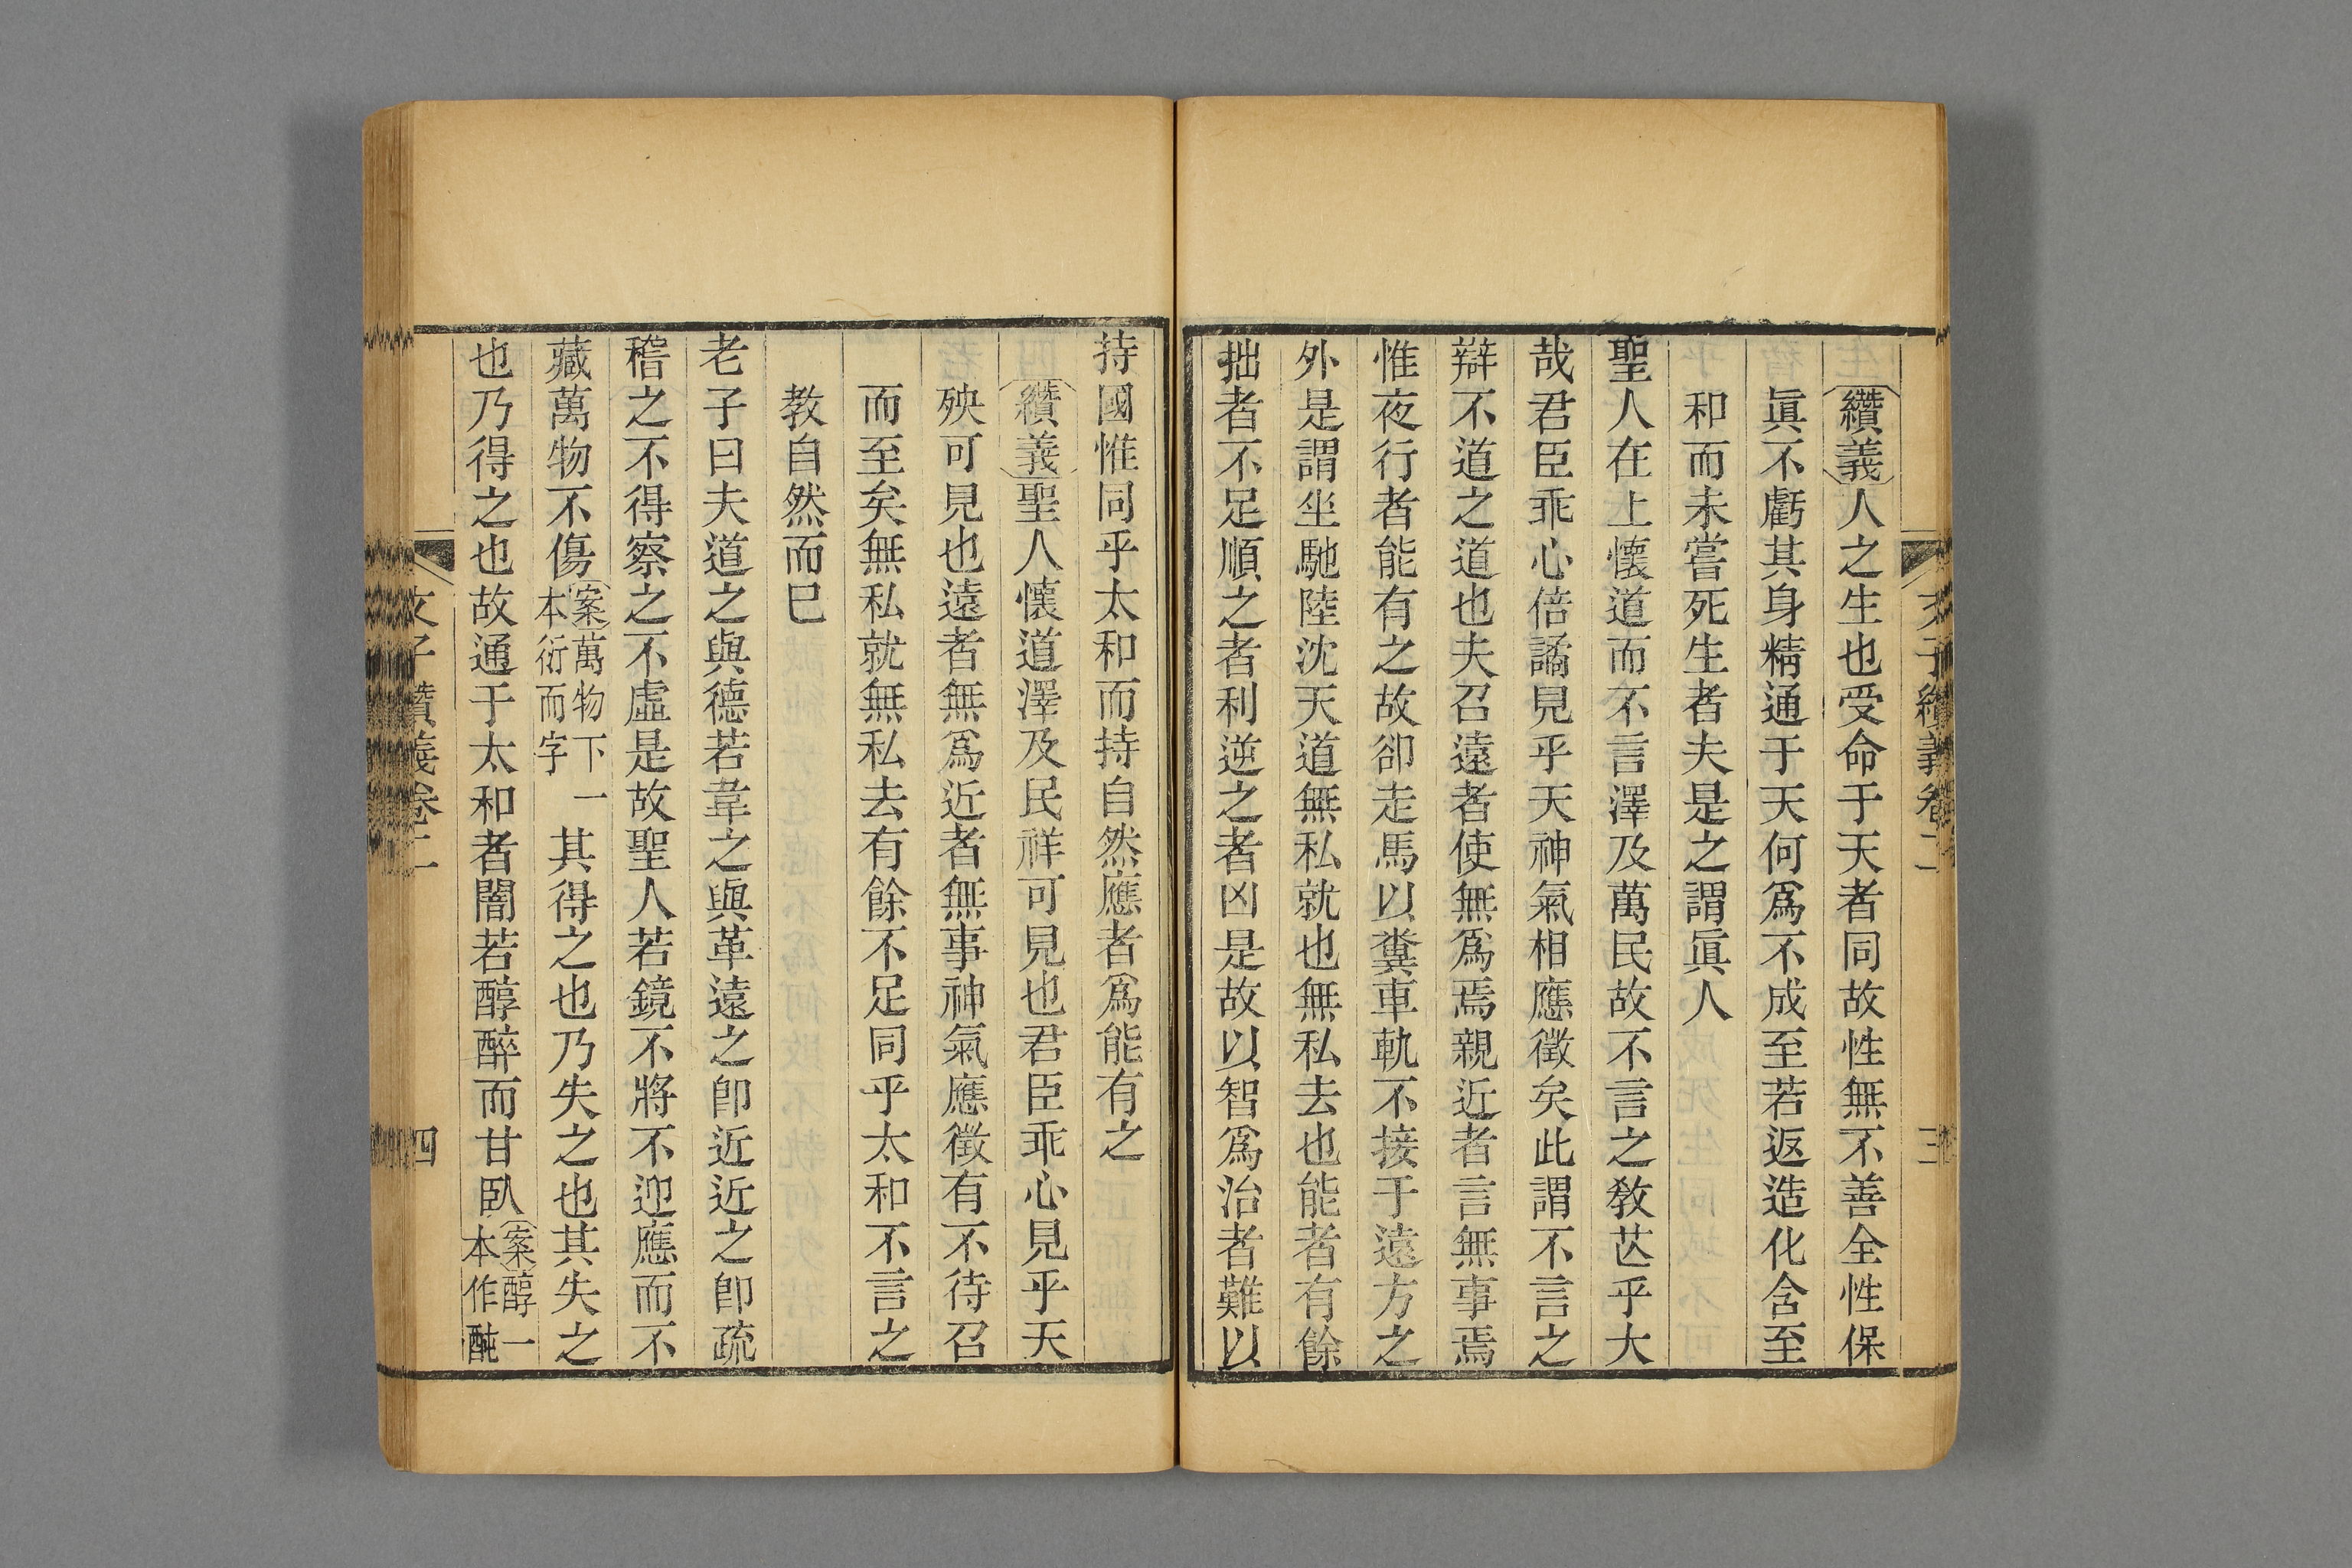 文子纘義卷二 三
纘義人之生也受命于天者同故性無不善全性保
眞不虧其身精通于天何爲不成至若返造化含至
和而未嘗死生者夫是之謂眞人
聖人在上懷道而不言澤及萬民故不言之敎芒乎大
哉君臣乖心倍譎見乎天神氣相應徵矣此謂不言之
辯不道之道也夫召遠者使無爲焉親近者言無事焉
惟夜行者能有之故卻走馬以糞車軌不接于遠方之
外是謂坐馳陸沈天道無私就也無私去也能者有餘
拙者不足順之者利逆之者凶是故以智爲治者難以
持國惟同乎太和而持自然應者爲能有之
纘義聖人懷道澤及民祥可見也君臣乖心見乎天
殃可見也遠者無爲近者無事神氣應徵有不待召
而至矣無私就無私去有餘不足同乎太和不言之
教自然而巳
老子曰夫道之與德若韋之與革遠之卽近近之卽疏
稽之不得察之不虛是故聖人若鏡不將不迎應而不
藏萬物不傷案萬物下一本衍而字其得之也乃失之也其失之
也乃得之也故通于太和者闇若醇醉而甘臥案醇一本作酏
文子纘義卷二 四